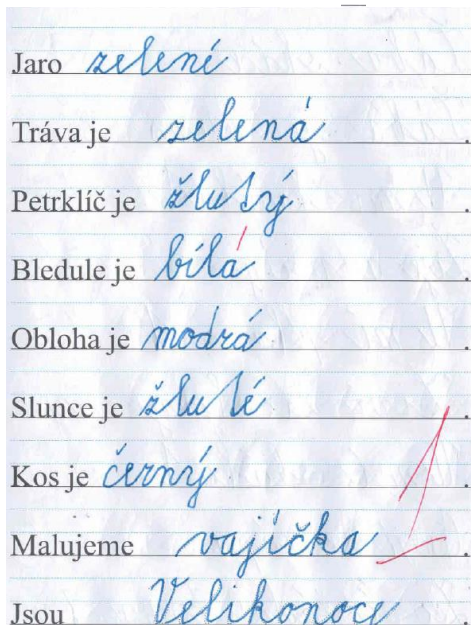 Jaro zelené
Tráva je zelená.
Petrklíč je žlutý.
Bledule je bílá.
Obloha je modrá.
Slunce je žluté.
Kos je černý.
Malujeme vajíčka.
Jsou Velikonoce.
1